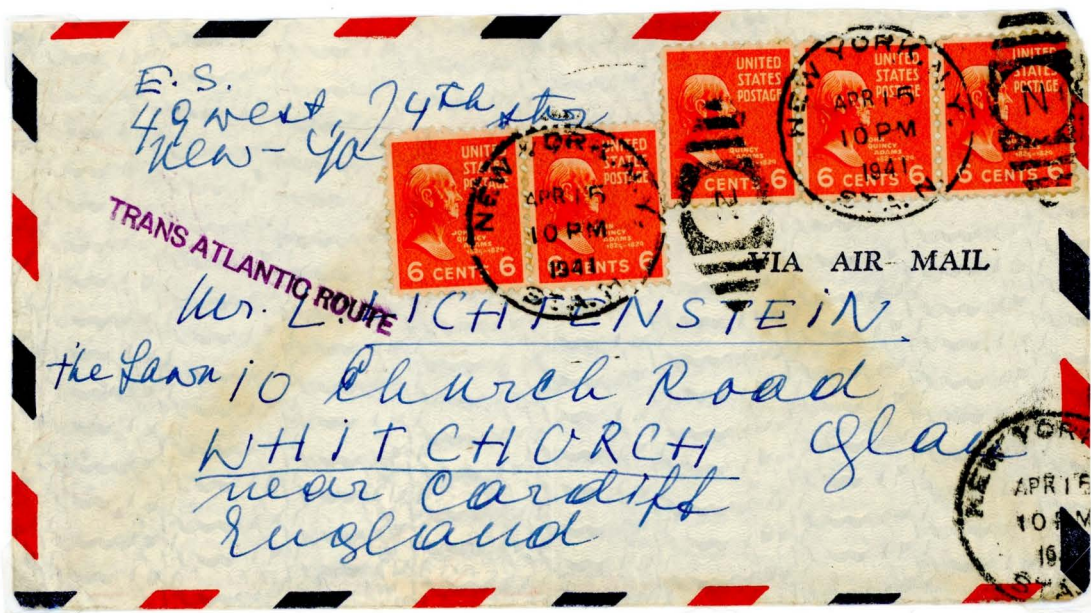 E.S.
49 west, 74th str
New-Yo
UNITED STATES POSTAGE
JOHN QUINCY ADAMS
1825-1829
6 CENTS 6
NEW YORK, N.Y.
APR 15
10 PM
1941
STA. N
N
TRANS ATLANTIC ROUTE
VIA AIR MAIL
Mr. L. LICHTENSTEIN
the Lawn 10 Church Road
WHITCHURCH Glam
near Cardiff
England
NEW YOR
APR 15
10 PM
194
STA